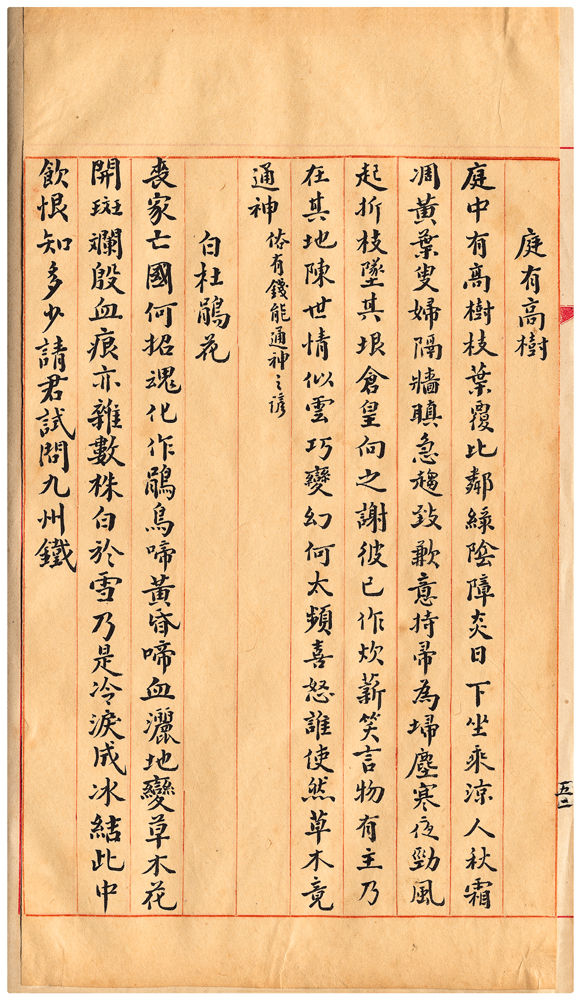 庭有高樹
庭中有高樹枝葉覆比鄰綠陰障炎日下坐乘涼人秋霜
凋黃葉叟婦隔牆瞋急趨致歉意持帚為埽塵寒夜勁風
起折枝墜其垠倉皇向之謝彼已作炊薪笑言物有主乃
在其地陳世情似雲巧變幻何太頻喜怒誰使然草木竟
通神
俗有錢能通神之諺
白杜鵑花
喪家亡國何招魂化作鵑鳥啼黃昏啼血灑地變草木花
開斑斕殷血痕亦雜數株白於雪乃是冷淚成冰結此中
飲恨知多少請君試問九州鐵
五二